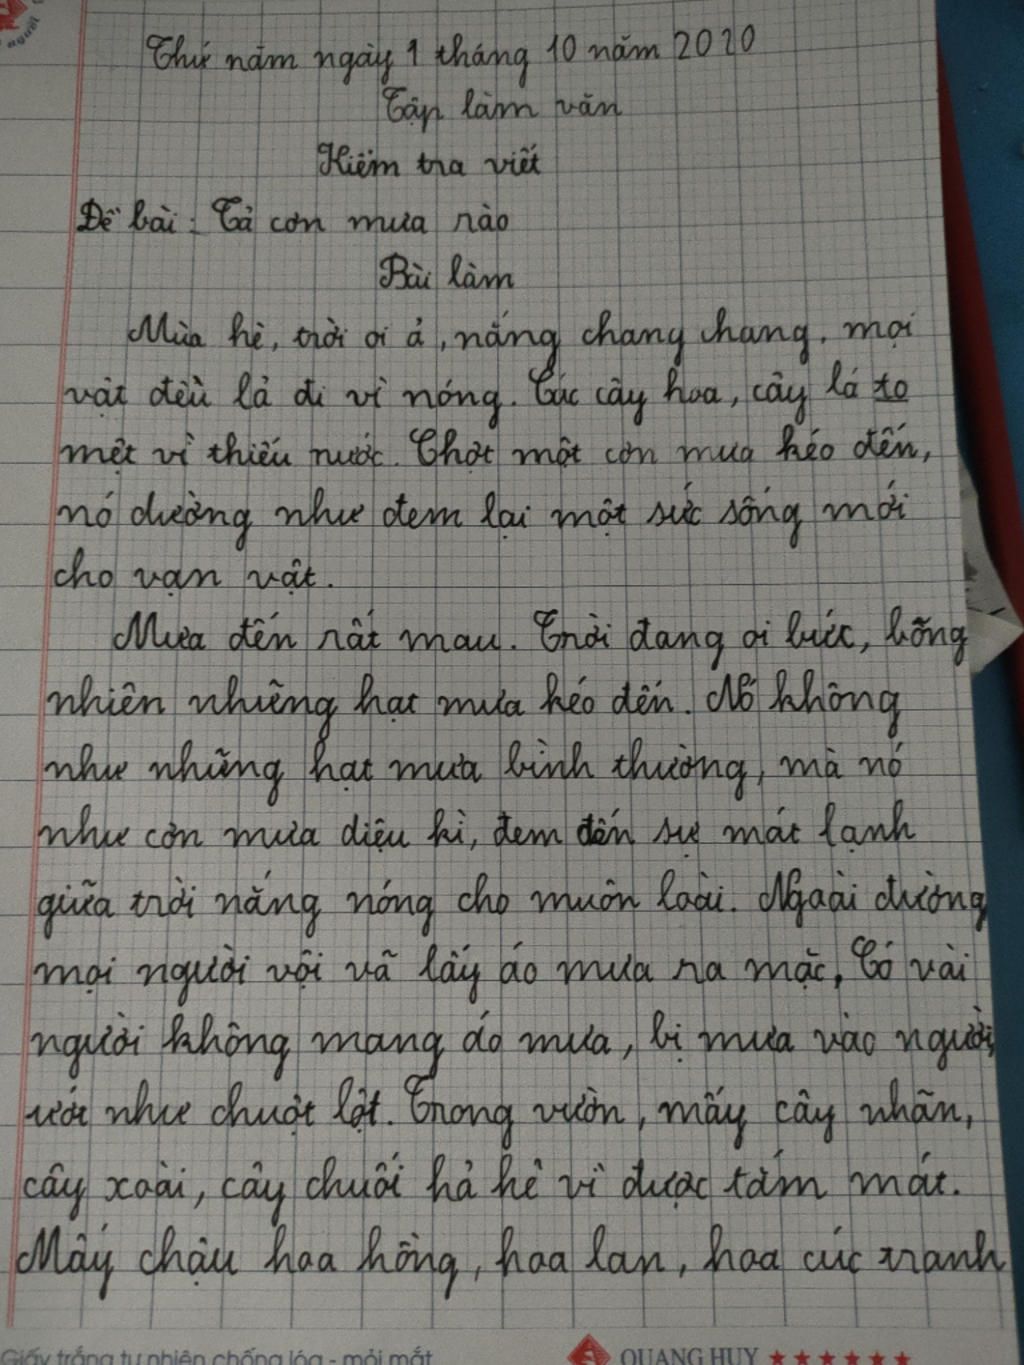 người
Thứ năm ngày 1 tháng 10 năm 2020
Tập làm văn
Kiểm tra viết
Đề bài: Tả cơn mưa rào
Bài làm
Mùa hè, trời oi ả, nắng chang chang, mọi
vật đều lả đi vì nóng. Các cây hoa, cây lá to
mệt vì thiếu nước. Chợt một cơn mưa kéo đến,
nó dường như đem lại một sức sống mới
cho vạn vật.
Mưa đến rất mau. Trời đang oi bức, bỗng
nhiên những hạt mưa kéo đến. Nó không
như những hạt mưa bình thường, mà nó
như cơn mưa diệu kì, đem đến sự mát lạnh
giữa trời nắng nóng cho muôn loài. Ngoài đường
mọi người vội vã lấy áo mưa ra mặc, Có vài
người không mang áo mưa, bị mưa vào người,
ướt như chuột lột. Trong vườn, mấy cây nhãn,
cây xoài, cây chuối hả hê vì được tắm mát.
Mấy chậu hoa hồng, hoa lan, hoa cúc tranh
Giấy trắng tự nhiên chống lóa - mỏi mắt QUANG HUY